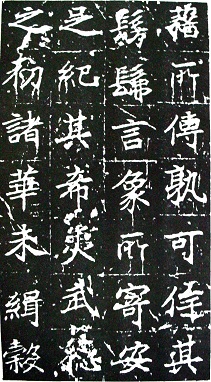 籍所傳孰可其
髣髴言象所寄安
足紀其希夷武德
之初諸華未緝穀